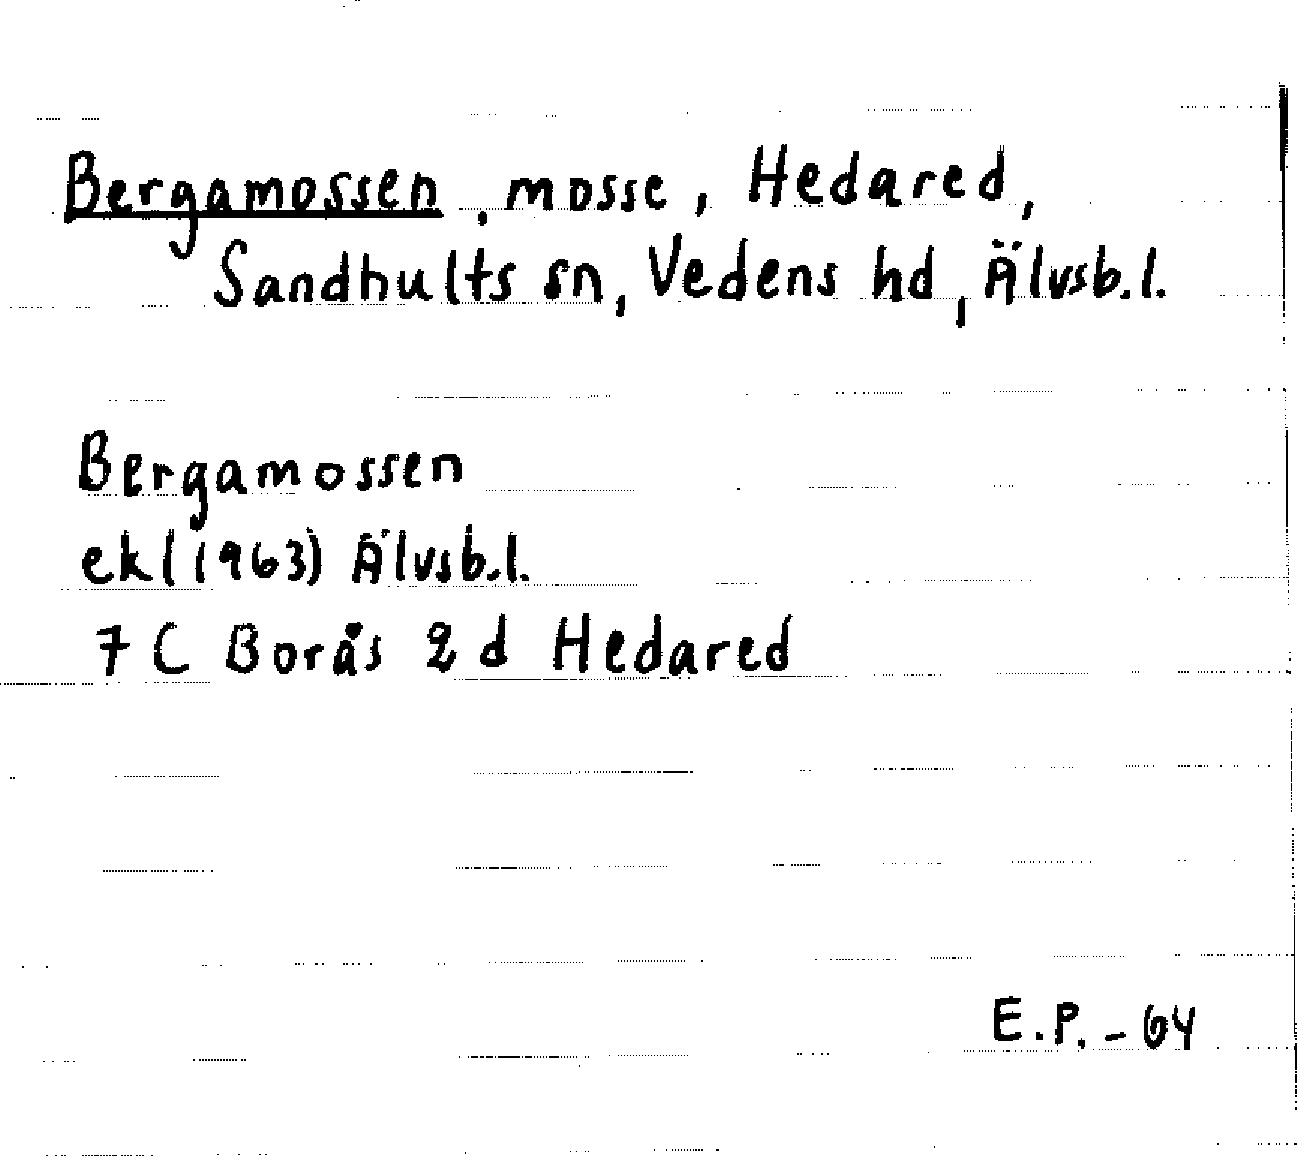 Bergamossen, mosse, Hedared,
Sandhults sn, Vedens hd, Älvsb.l.
Bergamossen
ek (1963) Älvsb.l.
7 C Borås 2 d Hedared
E.P. - 64